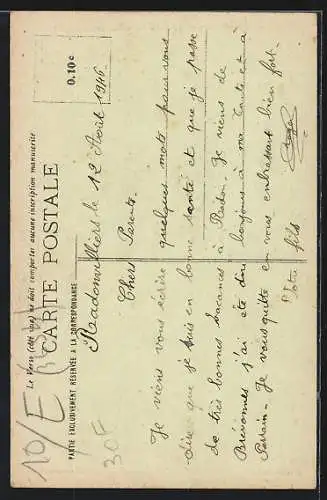 Le Verso (côté vue) ne doit comporter aucune inscription manuscrite
CARTE POSTALE
PARTIE EXCLUSIVEMENT RÉSERVÉE A LA CORRESPONDANCE
0.10c
10/E
30F
Radonvilliers le 12 Août 1946
Chers Parents.
Je viens vous écrire quelques mots pour vous
dire que je suis en bonne santé et que je passe
de très bonnes vacances à Radon. Je viens de
Brévonnes j'ai été dire bonjours à ma Tante et à
Parrain. Je vous quitte en vous embrassant bien fort.
Votre fils